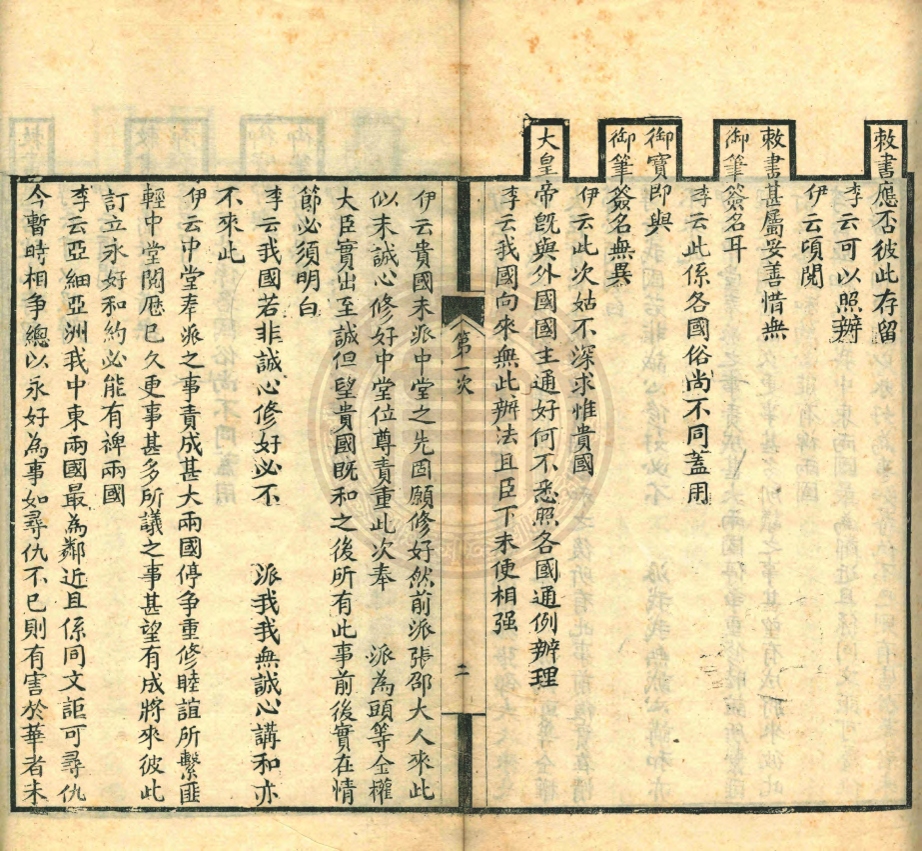 敕書應否彼此存留
李云可以照辦
伊云頃閱
敕書甚屬妥善惜無
御筆簽名耳
李云此係各國俗尚不同蓋用
御寶即與
御筆簽名無異
伊云此次姑不深求惟貴國
大皇帝旣與外國國主通好何不悉照各國通例辦理
李云我國向來無此辦法且臣下未便相强
第一次
二
伊云貴國未派中堂之先固願修好然前派張邵大人來此
似未誠心修好中堂位尊責重此次奉 派為頭等全權
大臣實出至誠但望貴國旣和之後所有此事前後實在情
節必須明白
李云我國若非誠心修好必不 派我我無誠心講和亦
不來此
伊云中堂奉派之事責成甚大兩國停争重修睦誼所繫匪
輕中堂閱歷已久更事甚多所議之事甚望有成將來彼此
訂立永好和約必能有裨兩國
李云亞細亞洲我中東兩國最為鄰近且係同文詎可尋仇
今暫時相争總以永好為事如尋仇不已則有害於華者未